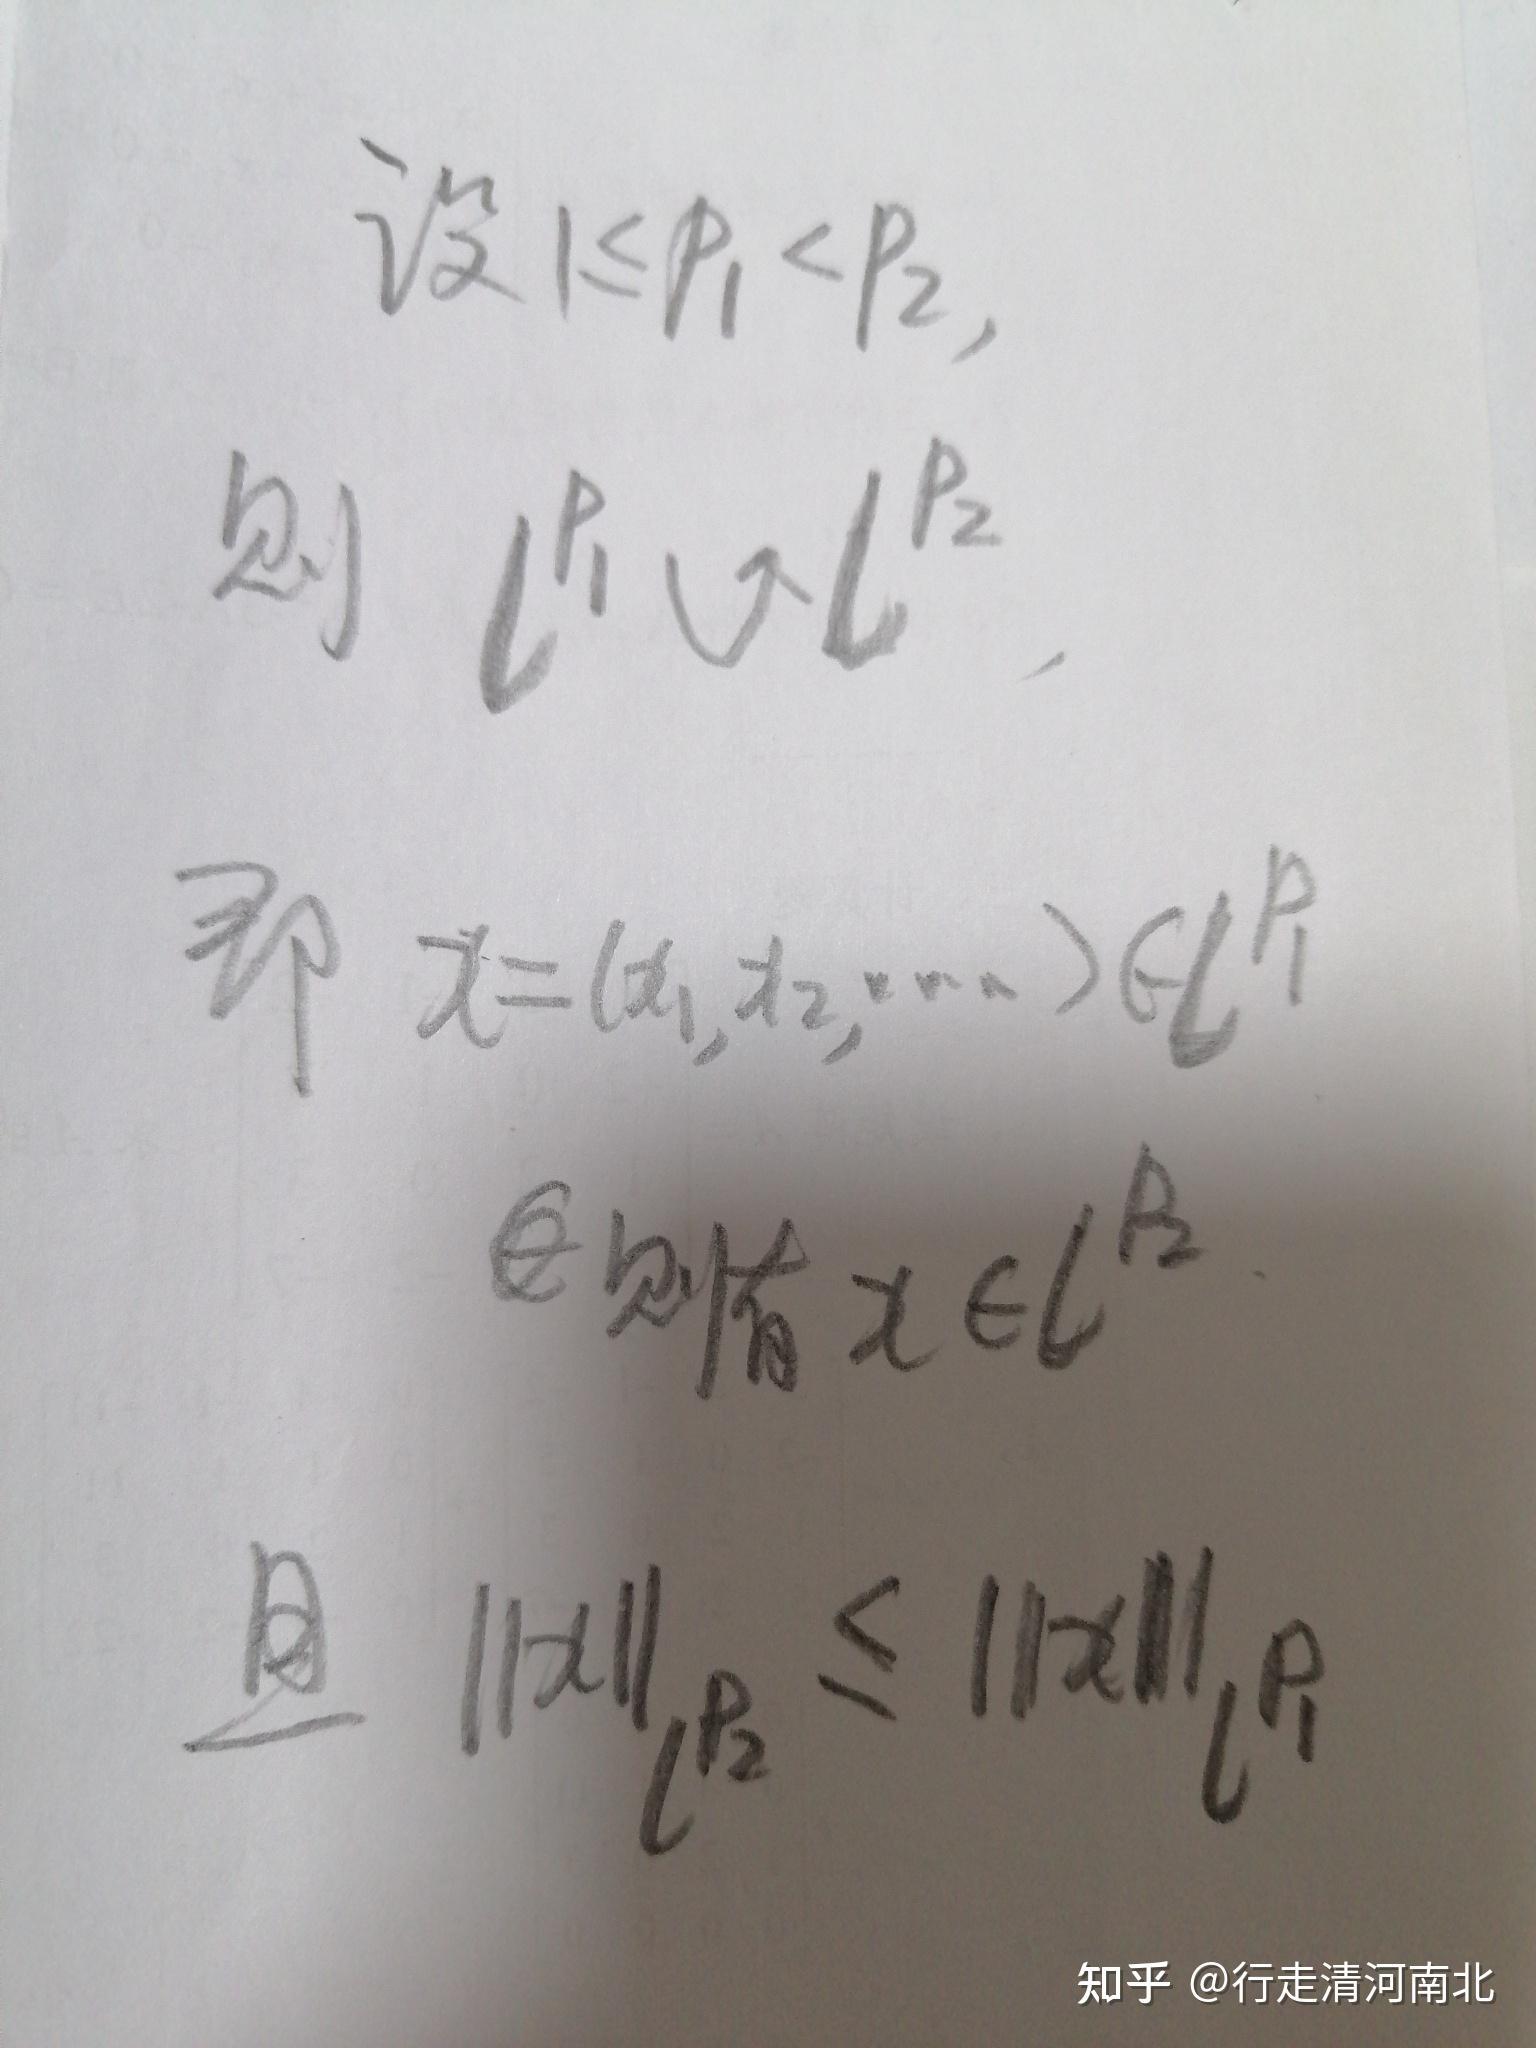 设 1≤p₁<p₂,
则 l^{p₁} ↪ l^{p₂},
即 x=(x₁,x₂,……)∈l^{p₁}
则有 x∈l^{p₂}.
且 ||x||_{l^{p₂}} ≤ ||x||_{l^{p₁}}
知乎 @行走清河南北